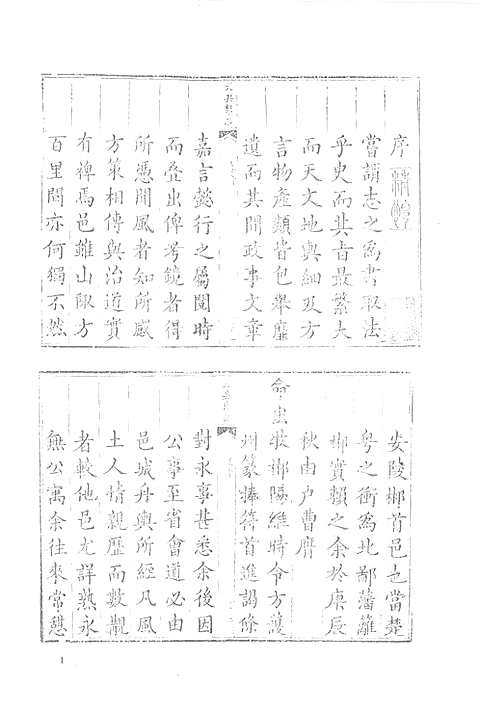 序
嘗謂志之爲書取法
乎史而其旨最繁大
而天文地輿細及方
言物產類皆包舉靡
遺而其間政事文章
嘉言懿行之屬閱時
而疊出俾考鏡者得
所憑聞風者知所感
方策相傳與治道實
有裨焉邑雖山陬方
百里間亦何獨不然
安陵郴首邑也當楚
粤之衝爲北鄙藩籬
郴實賴之余於庚辰
秋由戶曹膺
命出牧郴陽維時令方護
州篆捧符首進謁條
對永事甚悉余後因
公事至省會道必由
邑城舟輿所經凡風
土人情親歷而數覩
者較他邑尤詳熟永
無公寓余往來常憩
1